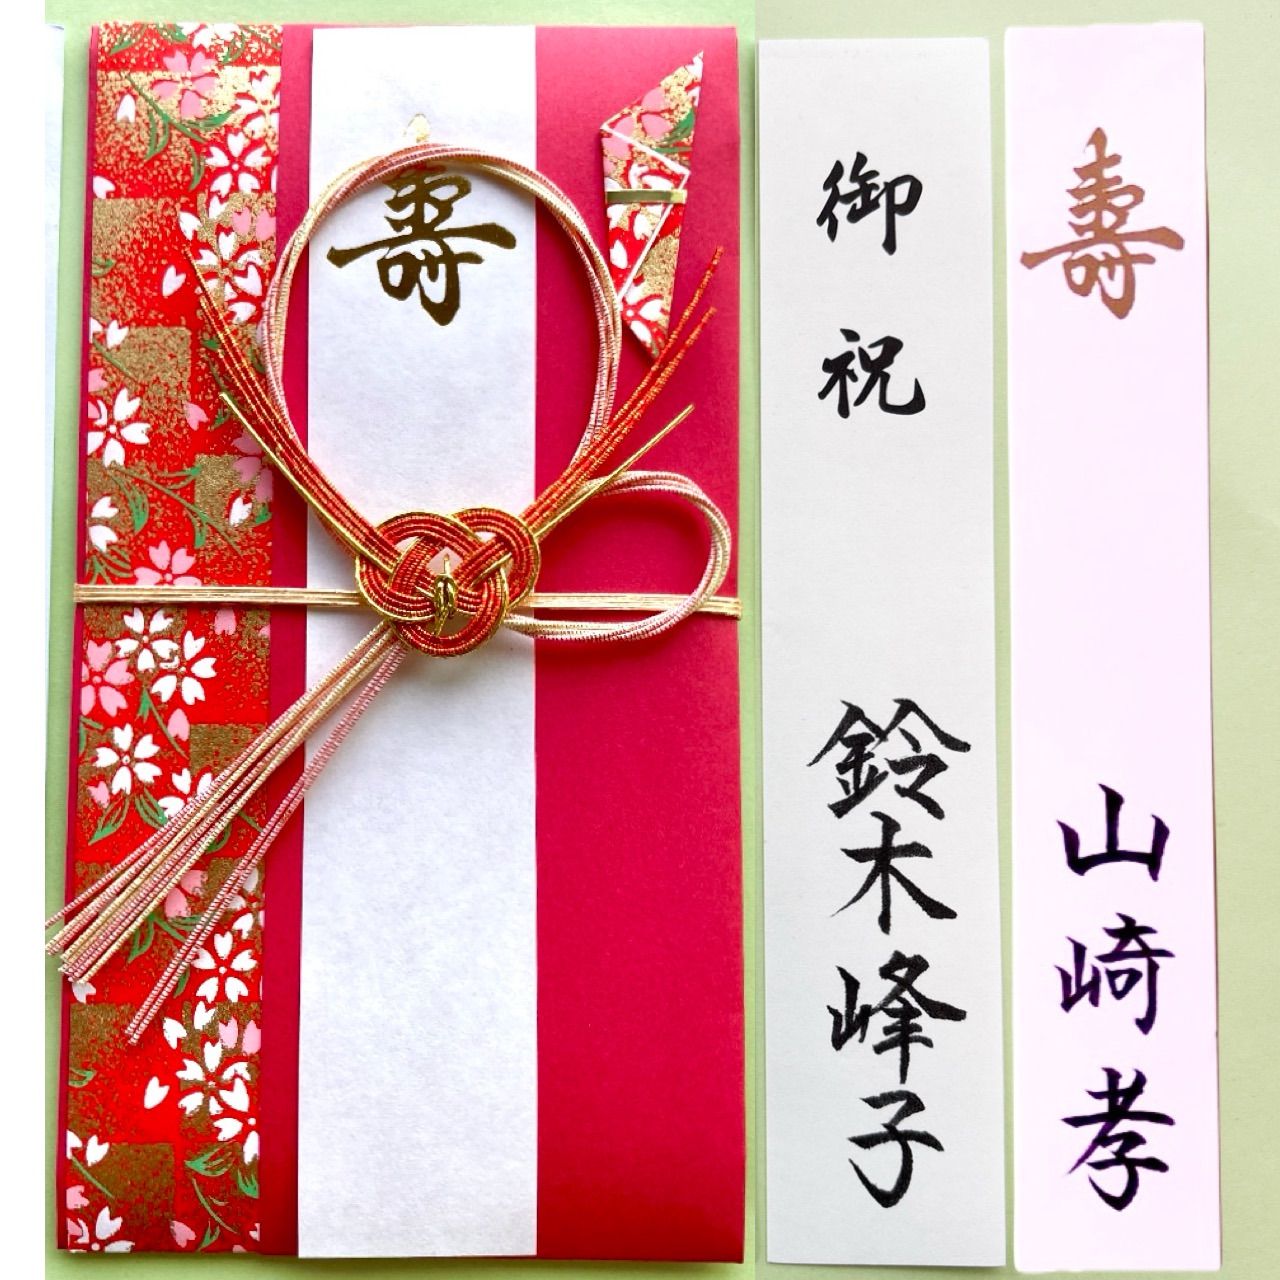 寿
御祝
鈴木峰子
寿
山崎孝